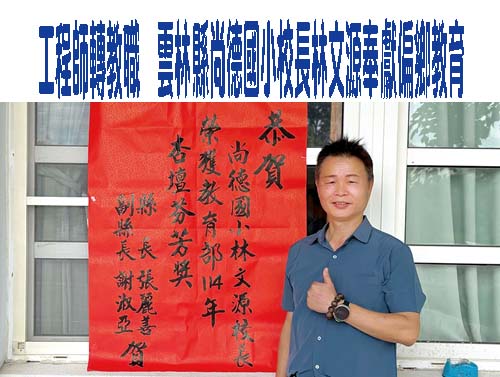 工程師轉教職 雲林縣尚德國小校長林文源奉獻偏鄉教育
恭賀
尚德國小林文源校長
榮獲教育部114年
杏壇芬芳獎
縣長張麗善
副縣長謝淑亞 賀